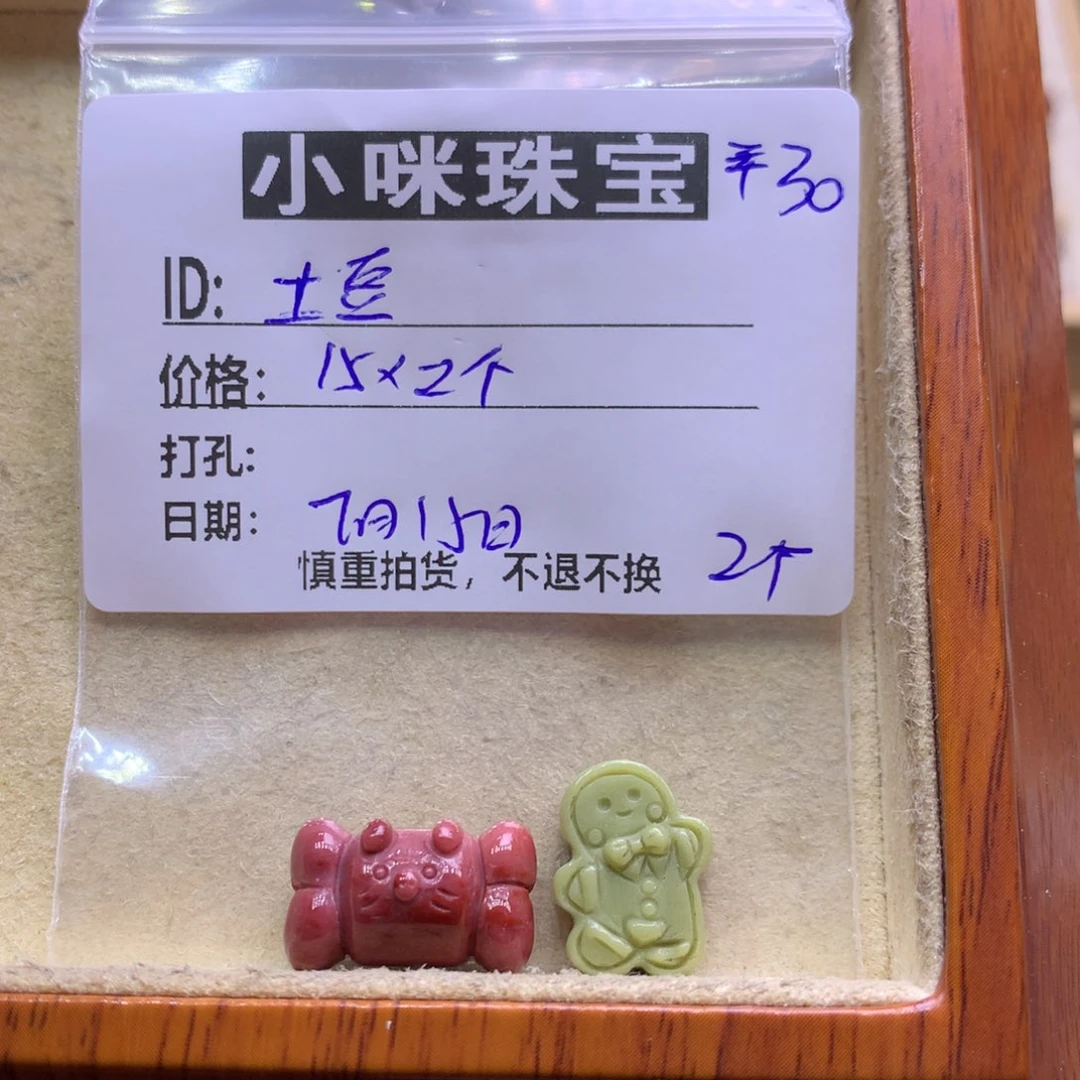 小咪珠宝 平30
ID: 土豆
价格: 15×2个
打孔:
日期: 7月15日
慎重拍货，不退不换 2个